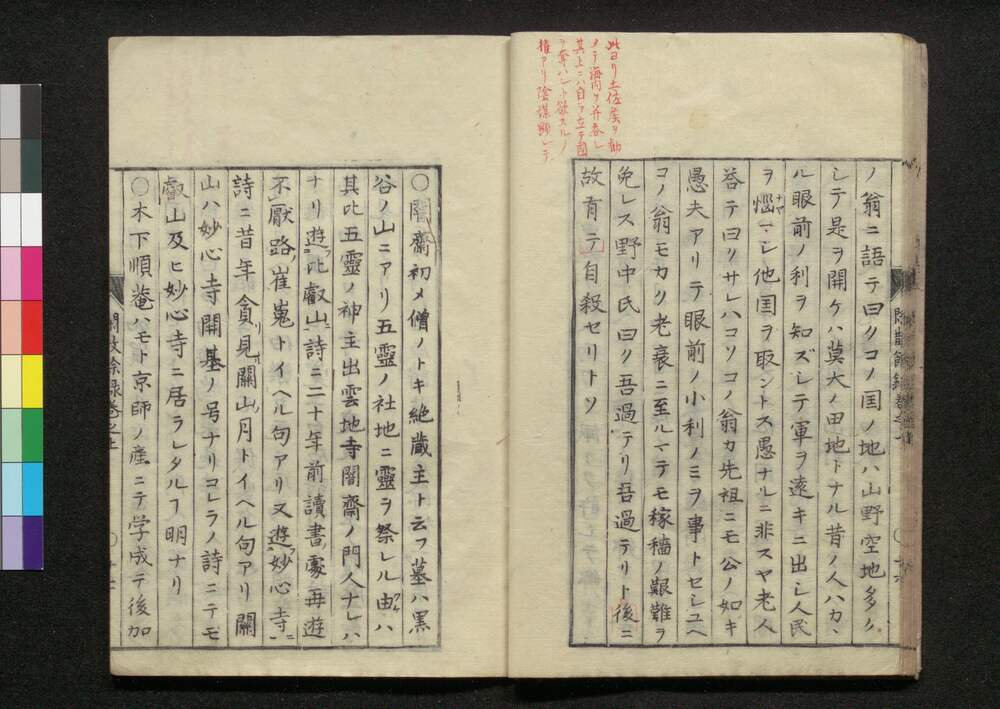 此ヨリ土佐矦ヲ勧
メテ海内ヲ并吞シ
其上ニハ自ラ立テ國
ヲ奪ハント欲スルノ
權アリ陰謀顕レテ
ノ翁ニ語テ曰クコノ国ノ地ハ山野空地多クノ
シテ是ヲ開ケハ莫大ノ田地トナル昔ノ人ハカヽ
ル眼前ノ利ヲ知ズシテ軍ヲ遠キニ出シ人民
ヲ惱マシ他国ヲ取ントス愚ナルニ非スヤ老人
答テ曰リサレハコソコノ翁カ先祖ニモ公ノ如キ
愚夫アリテ眼前ノ小利ノミヲ事トセシユヘ
コノ翁モカク老衰ニ至ルマテモ稼穡ノ艱難ヲ
免レス野中氏曰ク吾過テリ吾過テリト後ニ
故有テ自殺セリトソ
〇闇齋初メ僧ノトキ絶蔵主ト云フ墓ハ黒
谷ノ山ニアリ五靈ノ社地ニ靈ヲ祭レル由ハ
其比五靈ノ神主出雲地寺闇齋ノ門人ナレハ
ナリ遊比叡山ニ詩ニ二十年前讀書處再遊
不厭路崔嵬トイヘル句アリ又遊妙心寺ニ
詩ニ昔年貪見關山月トイヘル句アリ關
山ハ妙心寺開基ノ号ナリコレラノ詩ニテモ
叡山及ヒ妙心寺ニ居ラレタルフ明ナリ
〇木下順菴ハモト京師ノ産ニテ学成テ後加
閒散余録巻之上